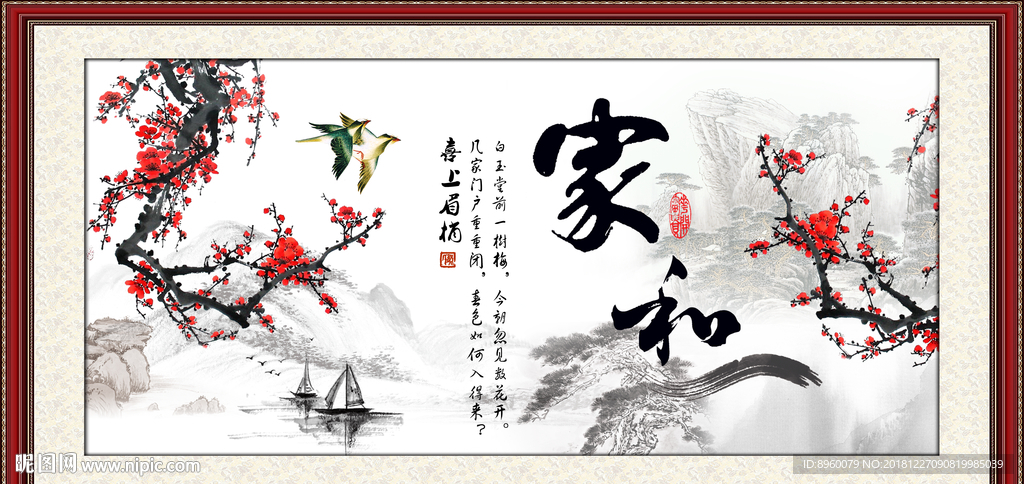 家
和
白玉堂前一樹梅，今朝忽见数花开。
几家门户重重闭，春色如何入得来？
喜上眉梢
昵图网 www.nipic.com
ID:8960079 NO.20181227090819985039